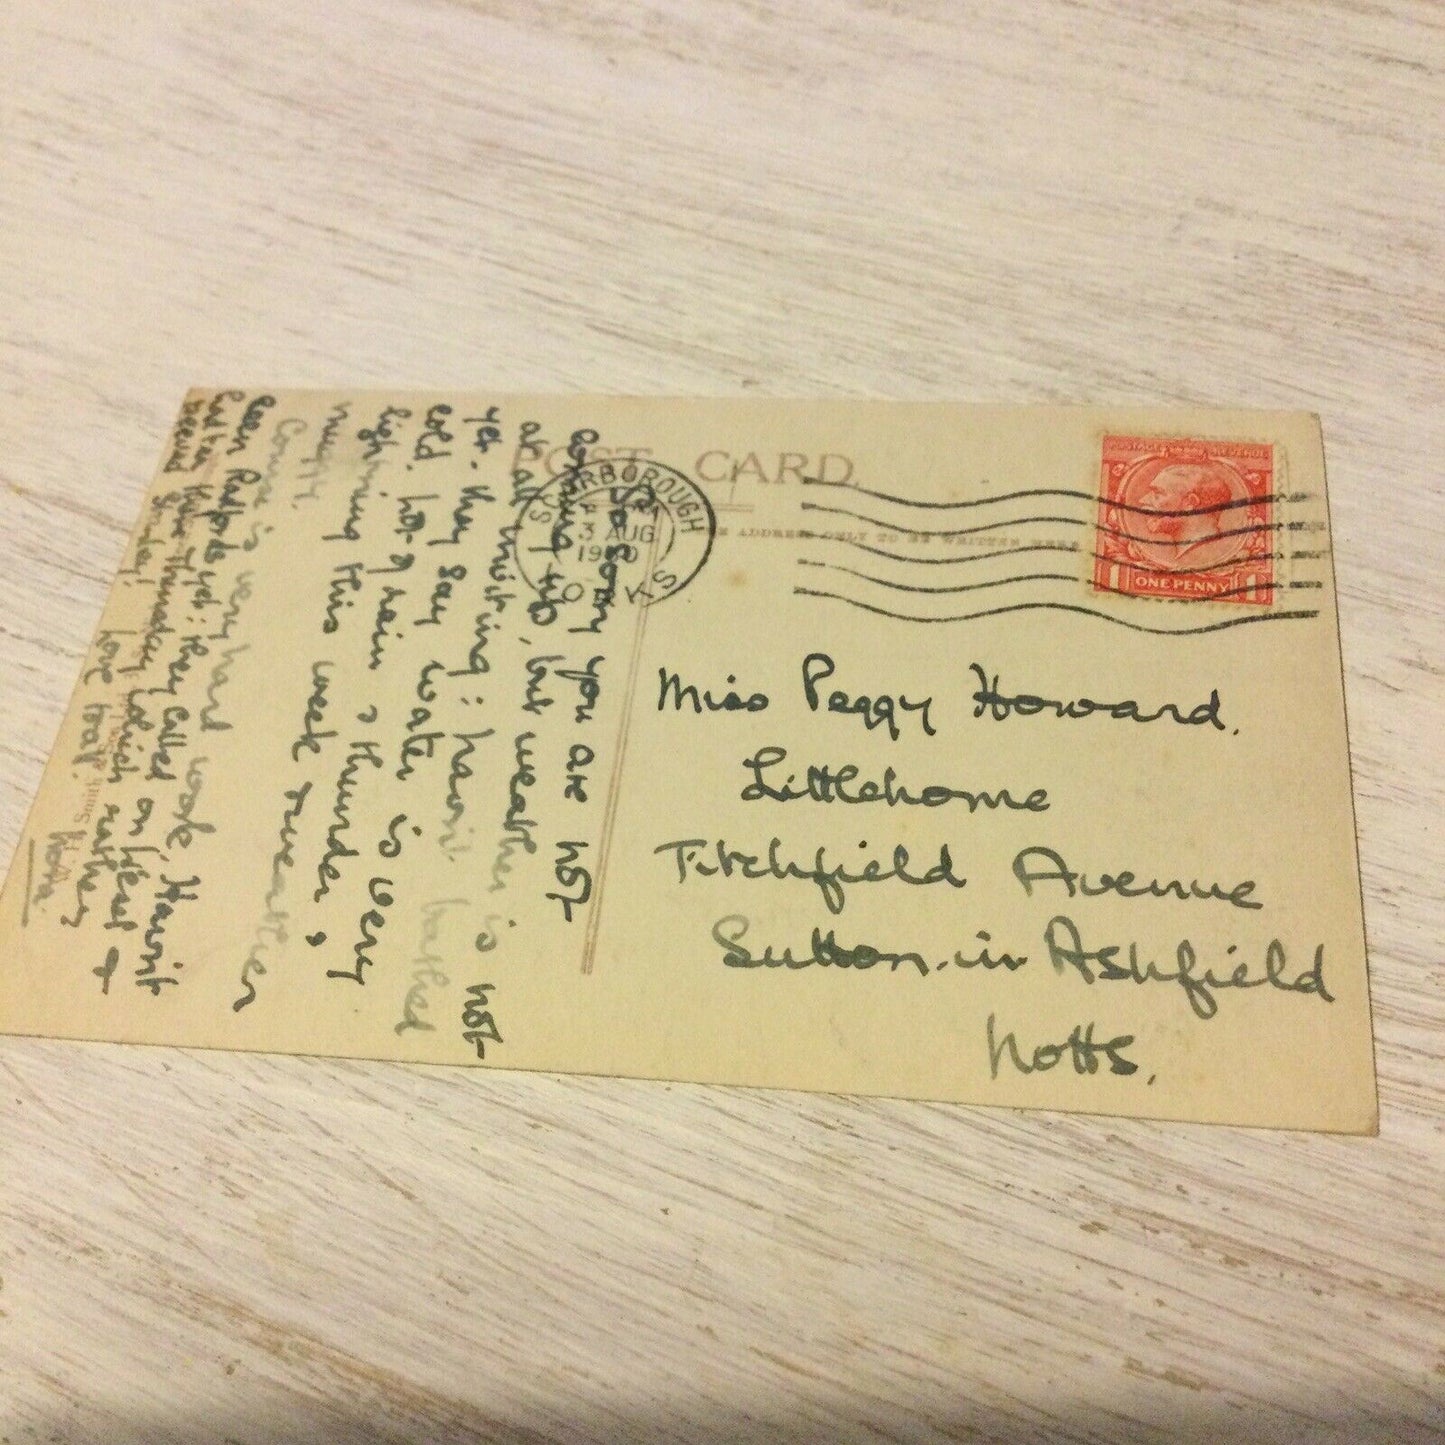 POST CARD.
ADDRESS ONLY TO BE WRITTEN HERE
SCARBOROUGH
3 AUG
YKS
POSTAGE REVENUE
1 ONE PENNY 1
Miss Peggy Howard.
Littlehome
Titchfield Avenue
Sutton-in-Ashfield
Notts.
So sorry you are not
coming up, but weather is not
at all inviting: haven't bathed
yet. they say water is very
cold. lot of rain & thunder &
lightning this week & weather
muggy.
Connie is very hard work, Haven't
seen Radfords yet: they called on West &
had tea here Thursday which rather
love to all.
Nora.